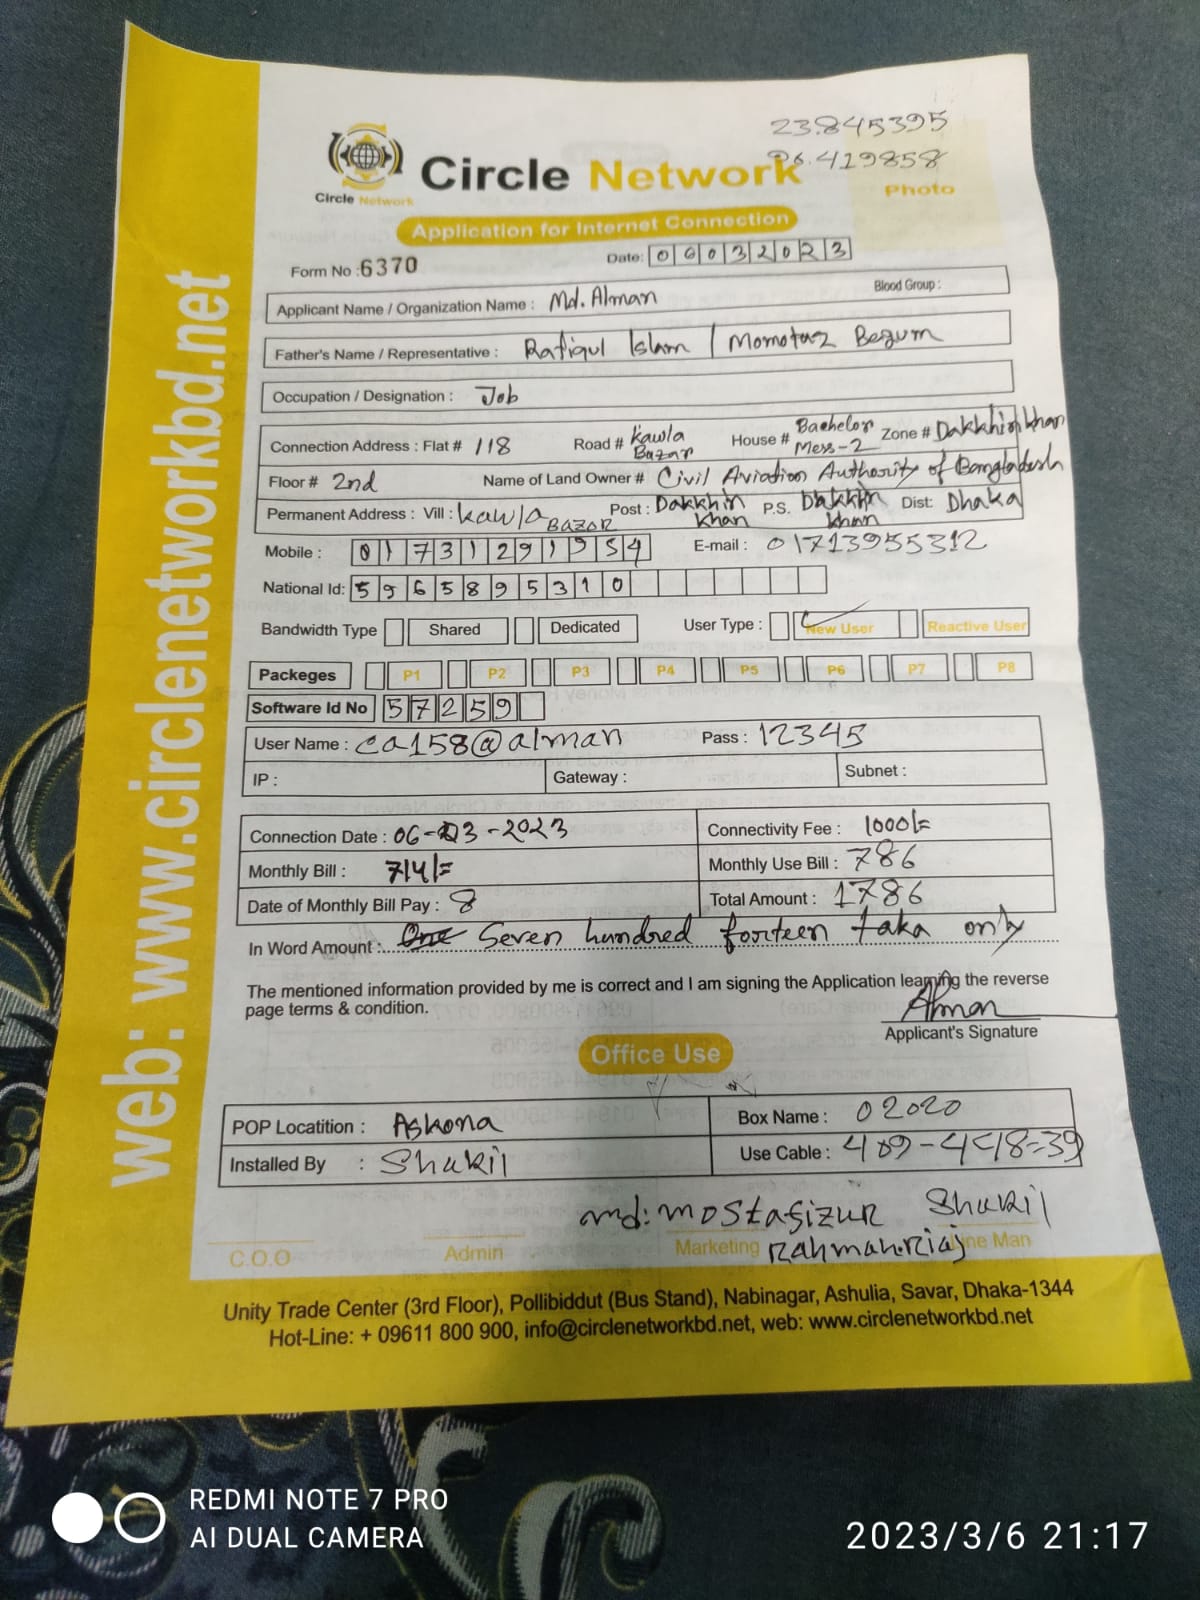 23.845395
96.419858
Circle Network
Circle Network
Photo
Application for Internet Connection
Form No :6370
Date: 06032023
Applicant Name / Organization Name : Md. Alman
Blood Group :
Father's Name / Representative : Rafiqul Islam / Momotaz Begum
Occupation / Designation : Job
Connection Address : Flat # 118 Road # Kawla Bazar House # Bachelor Mess-2 Zone # Dakkhin khan
Floor # 2nd Name of Land Owner # Civil Aviation Authority of Bangladesh
Permanent Address : Vill : kawla BAZOR Post : Dakkhin khan P.S. Dakkhin khan Dist: Dhaka
Mobile : 01731291954 E-mail : 01713955312
National Id: 5965895310
Bandwidth Type Shared Dedicated User Type : New User Reactive User
Packeges P1 P2 P3 P4 P5 P6 P7 P8
Software Id No 57259
User Name : ca158@alman Pass : 12345
IP : Gateway : Subnet :
Connection Date : 06-03-2023 Connectivity Fee : 1000/=
Monthly Bill : 714/= Monthly Use Bill : 786
Date of Monthly Bill Pay : 8 Total Amount : 1786
In Word Amount : One Seven hundred forteen taka only
The mentioned information provided by me is correct and I am signing the Application learning the reverse
page terms & condition.
Alman
Applicant's Signature
Office Use
POP Locatition : Askona Box Name : 02020
Installed By : Shakil Use Cable : 409-448=39
md: mostafizur Shakil
Rahman.Riaj
C.O.O Admin Marketing Line Man
Unity Trade Center (3rd Floor), Pollibiddut (Bus Stand), Nabinagar, Ashulia, Savar, Dhaka-1344
Hot-Line: + 09611 800 900, info@circlenetworkbd.net, web: www.circlenetworkbd.net
web: www.circlenetworkbd.net
REDMI NOTE 7 PRO
AI DUAL CAMERA
2023/3/6 21:17